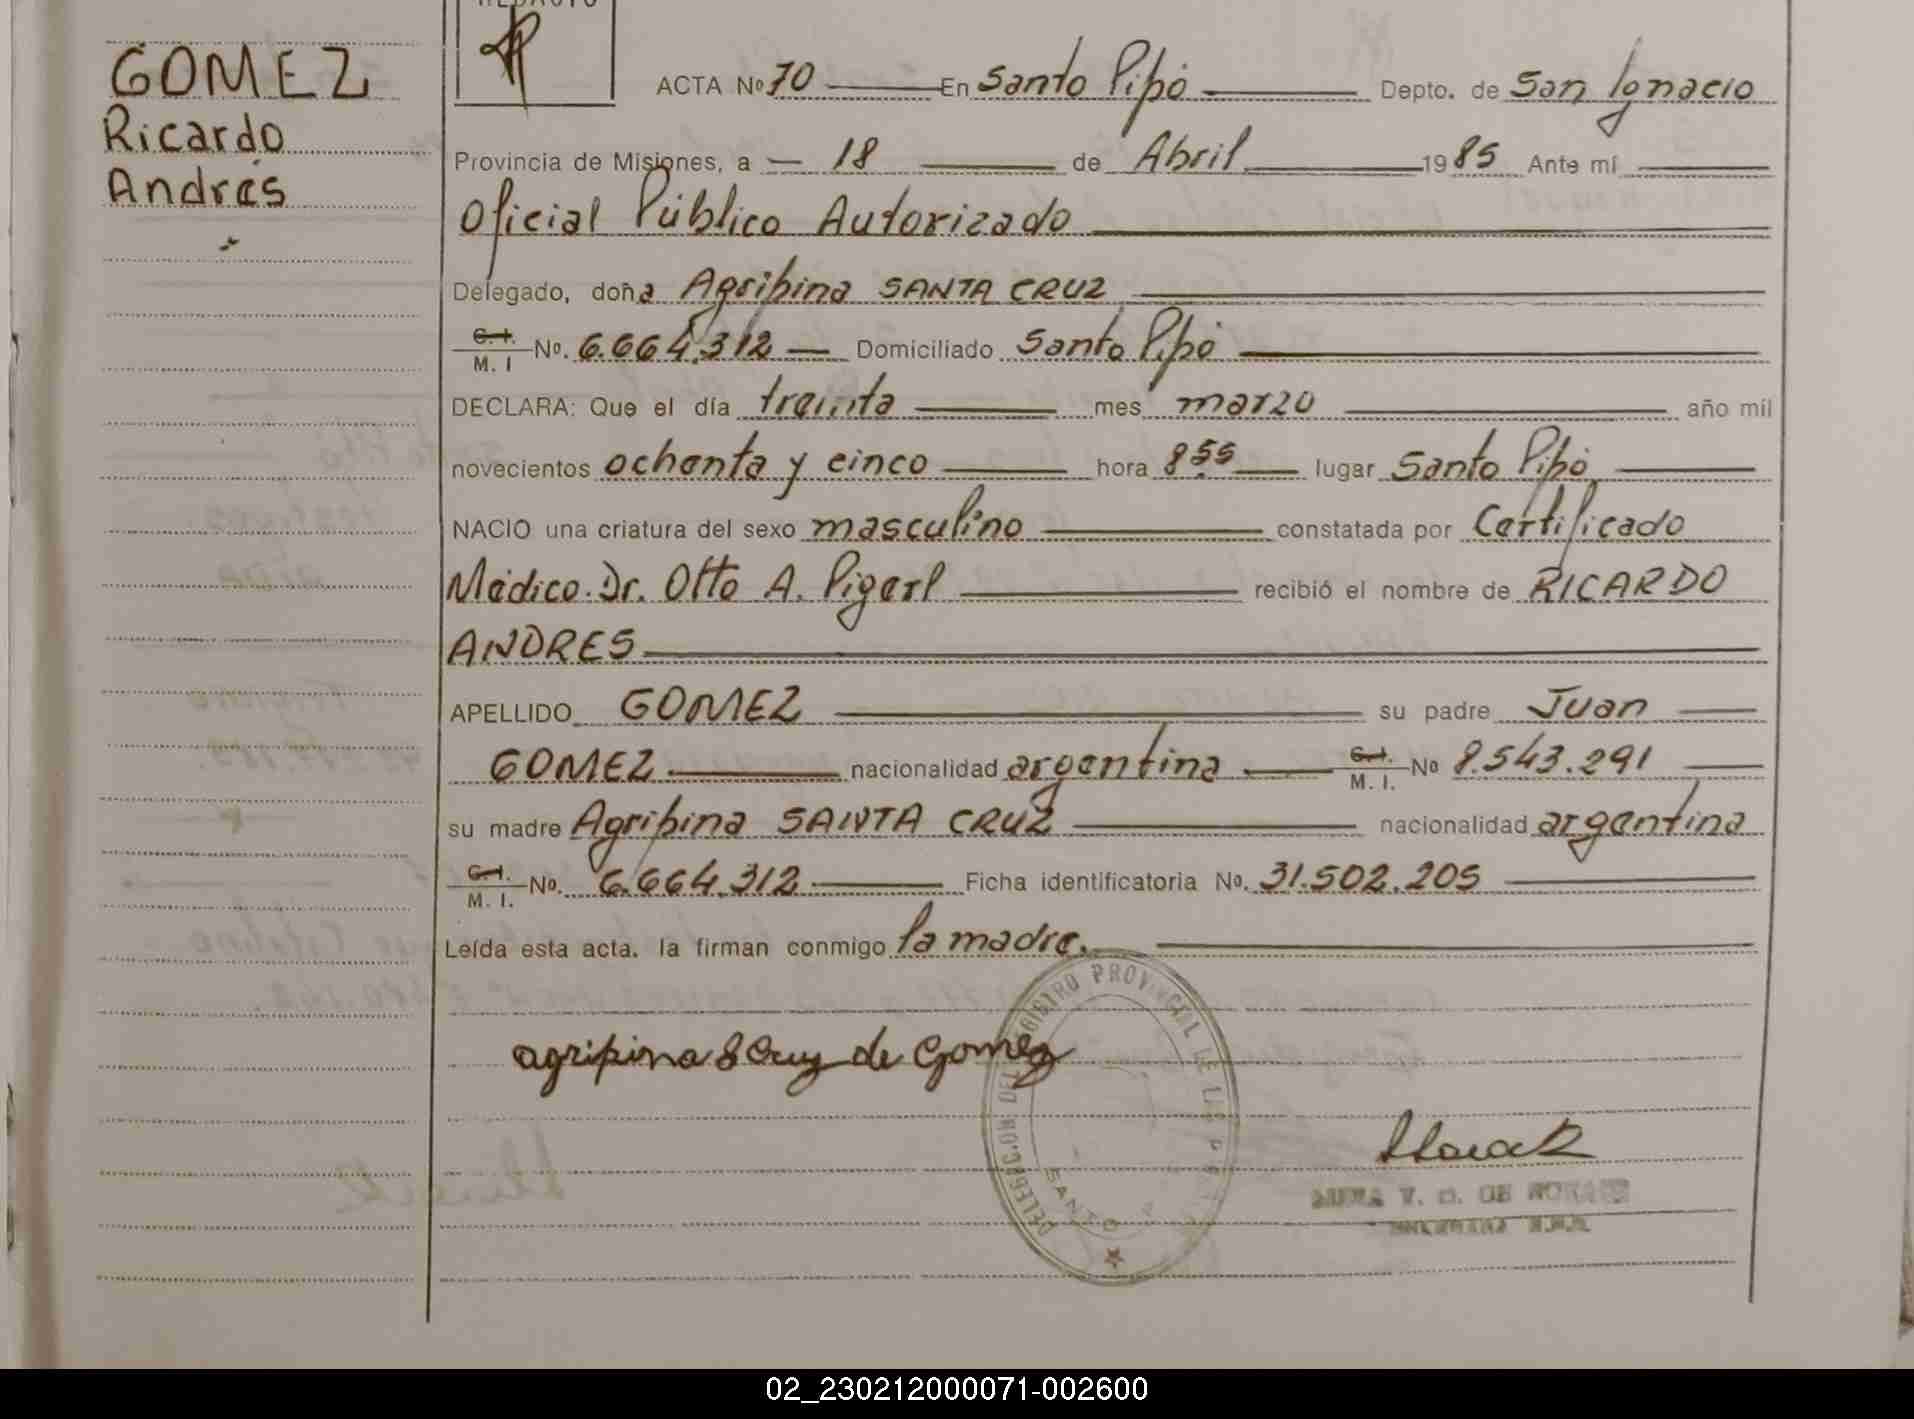 GOMEZ
Ricardo
Andrés
REDACTO
ACTA Nº 70 En Santo Pipó Depto. de San Ignacio
Provincia de Misiones, a 18 de Abril 1985 Ante mí
Oficial Público Autorizado
Delegado, doña Agripina SANTA CRUZ
C. I. M. I Nº. 6.664.312 Domiciliado Santo Pipó
DECLARA: Que el día treinta mes marzo año mil
novecientos ochenta y cinco hora 8 55 lugar Santo Pipó
NACIO una criatura del sexo masculino constatada por Certificado
Médico. Dr. Otto A. Pigerl recibió el nombre de RICARDO
ANDRES
APELLIDO GOMEZ su padre Juan
GOMEZ nacionalidad argentina C.I. M. I. Nº 8.543.291
su madre Agripina SANTA CRUZ nacionalidad argentina
C.I. M. I. Nº. 6.664.312 Ficha identificatoria Nº. 31.502.205
Leída esta acta. la firman conmigo la madre.
agripina S Cruz de Gomez
DELEGACION DEL REGISTRO PROVINCIAL DE LAS
SANTO
02_230212000071-002600